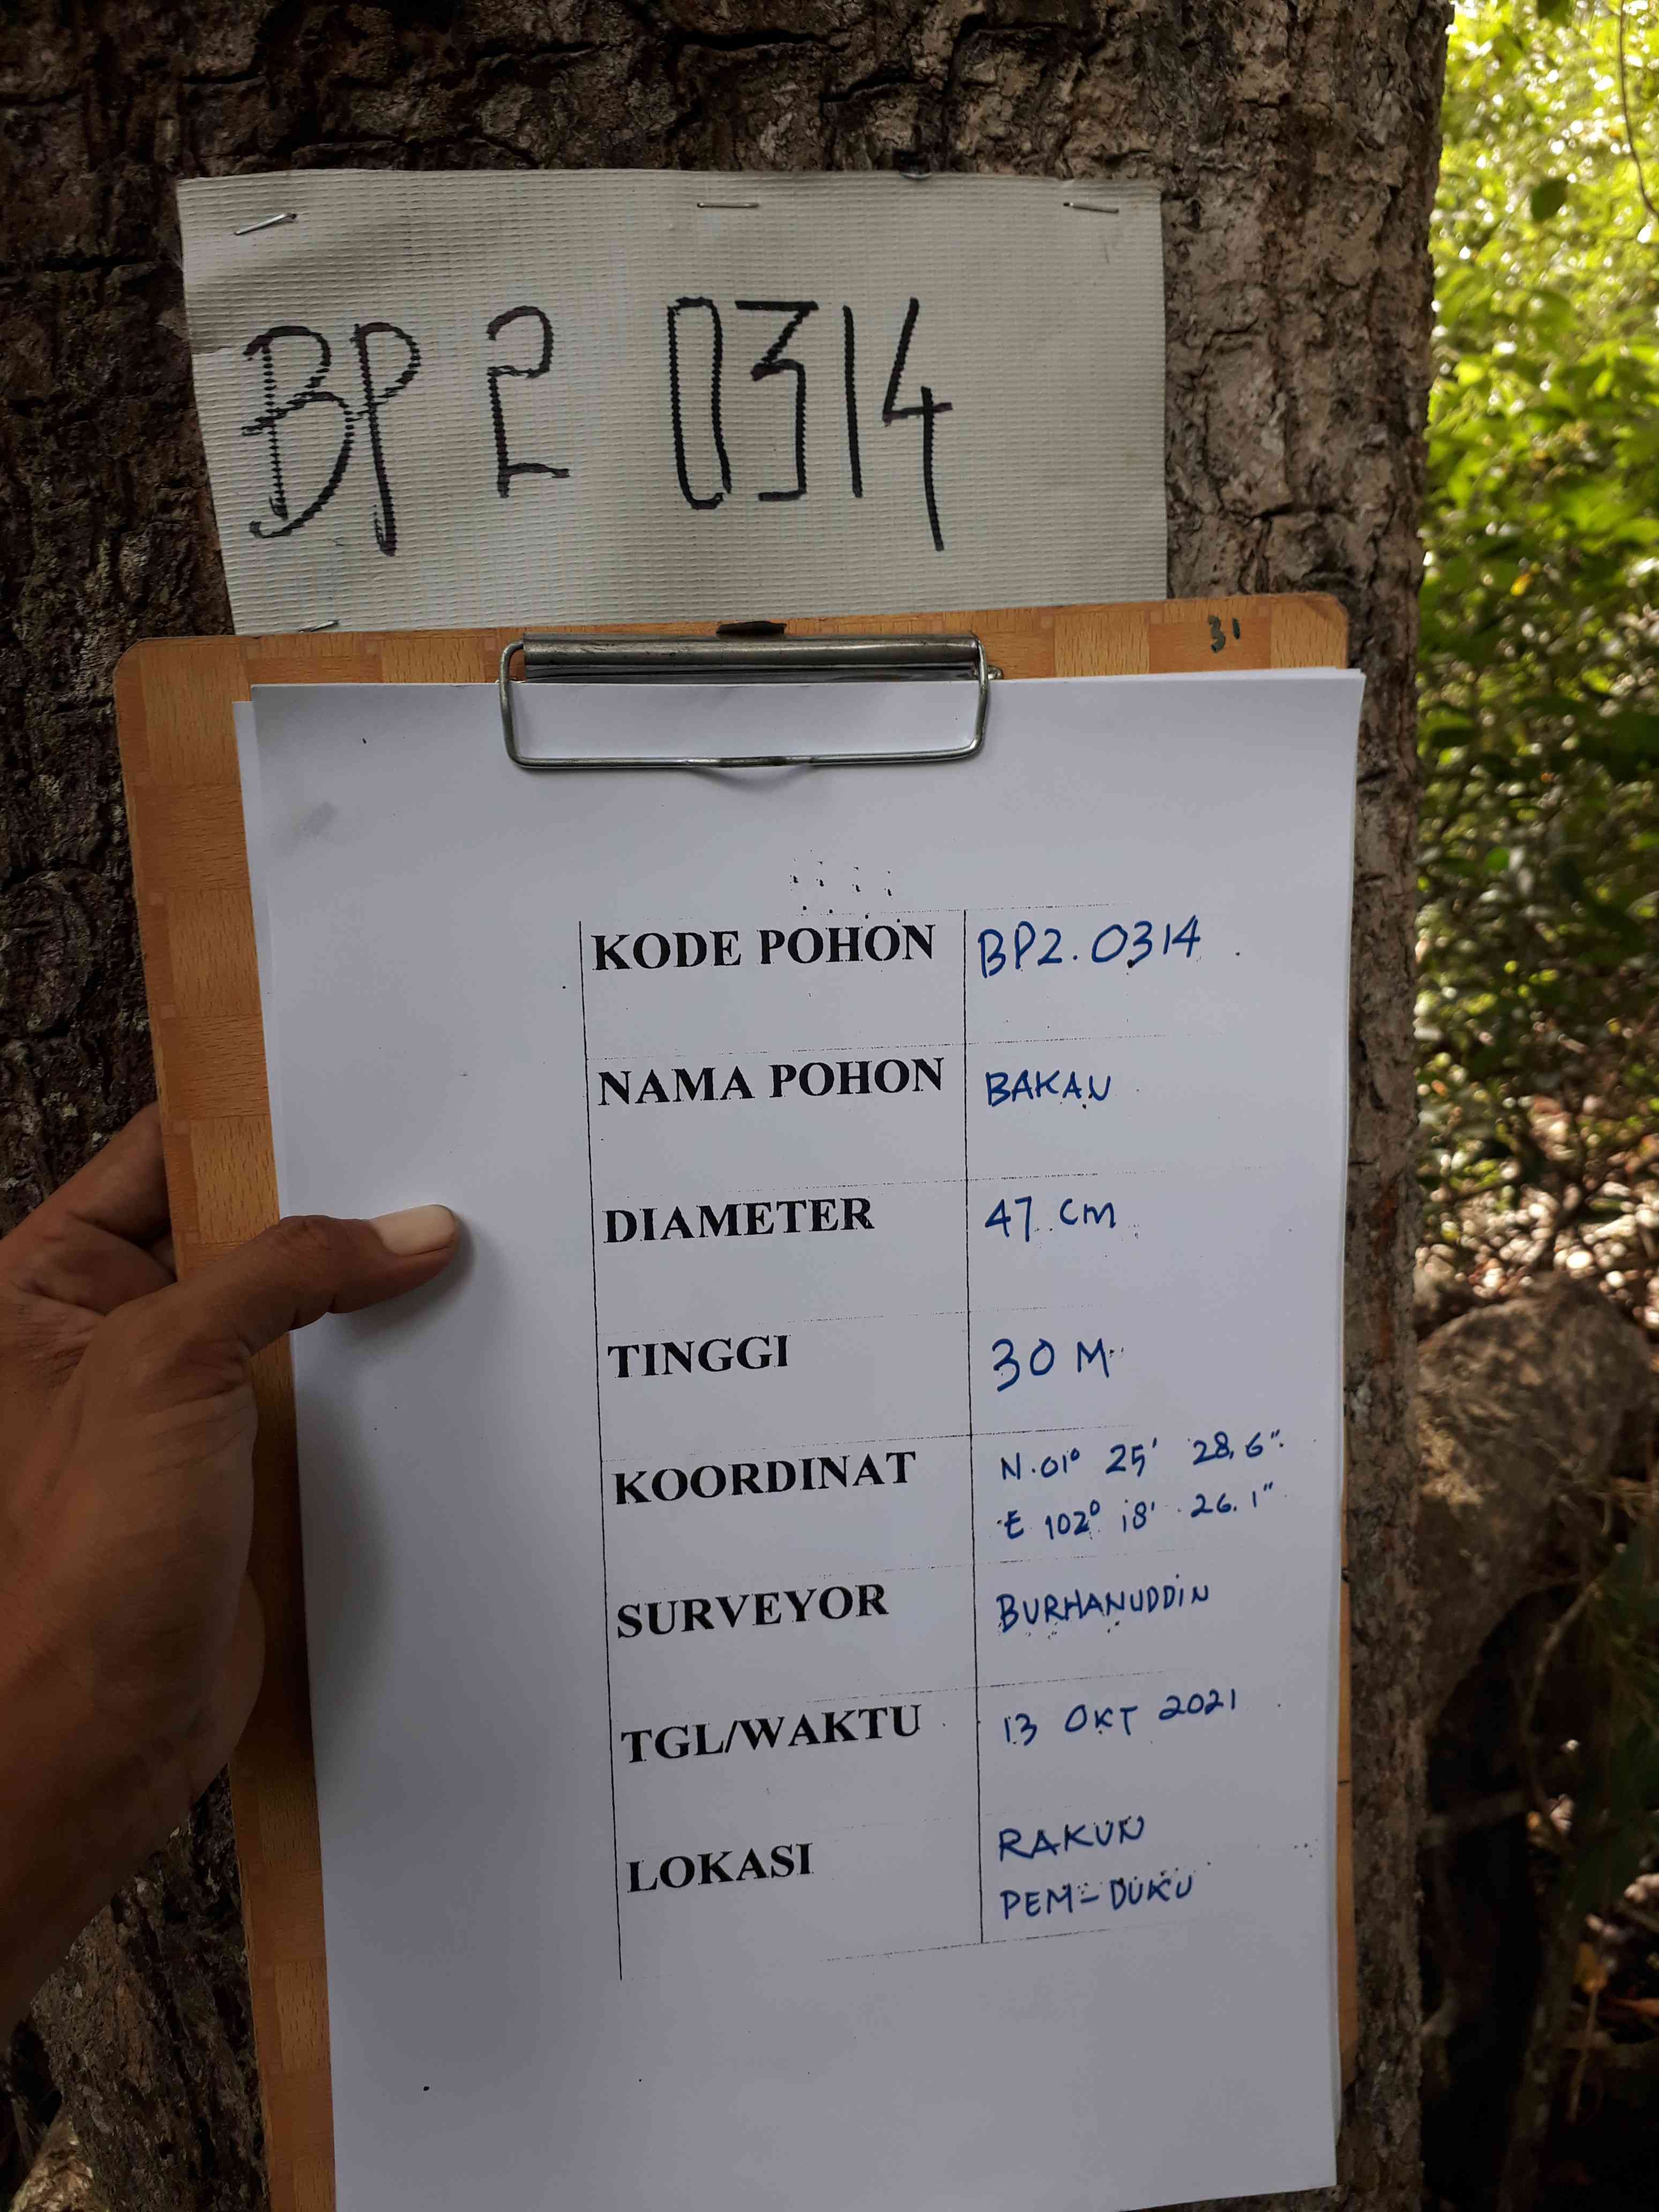 BP 2 0314
31
KODE POHON BP2.0314
NAMA POHON BAKAU
DIAMETER 47 cm
TINGGI 30 M
KOORDINAT N.01° 25' 28,6"
E 102° 18' 26.1"
SURVEYOR BURHANUDDIN
TGL/WAKTU 13 OKT 2021
LOKASI RAKUN
PEM-DUKU